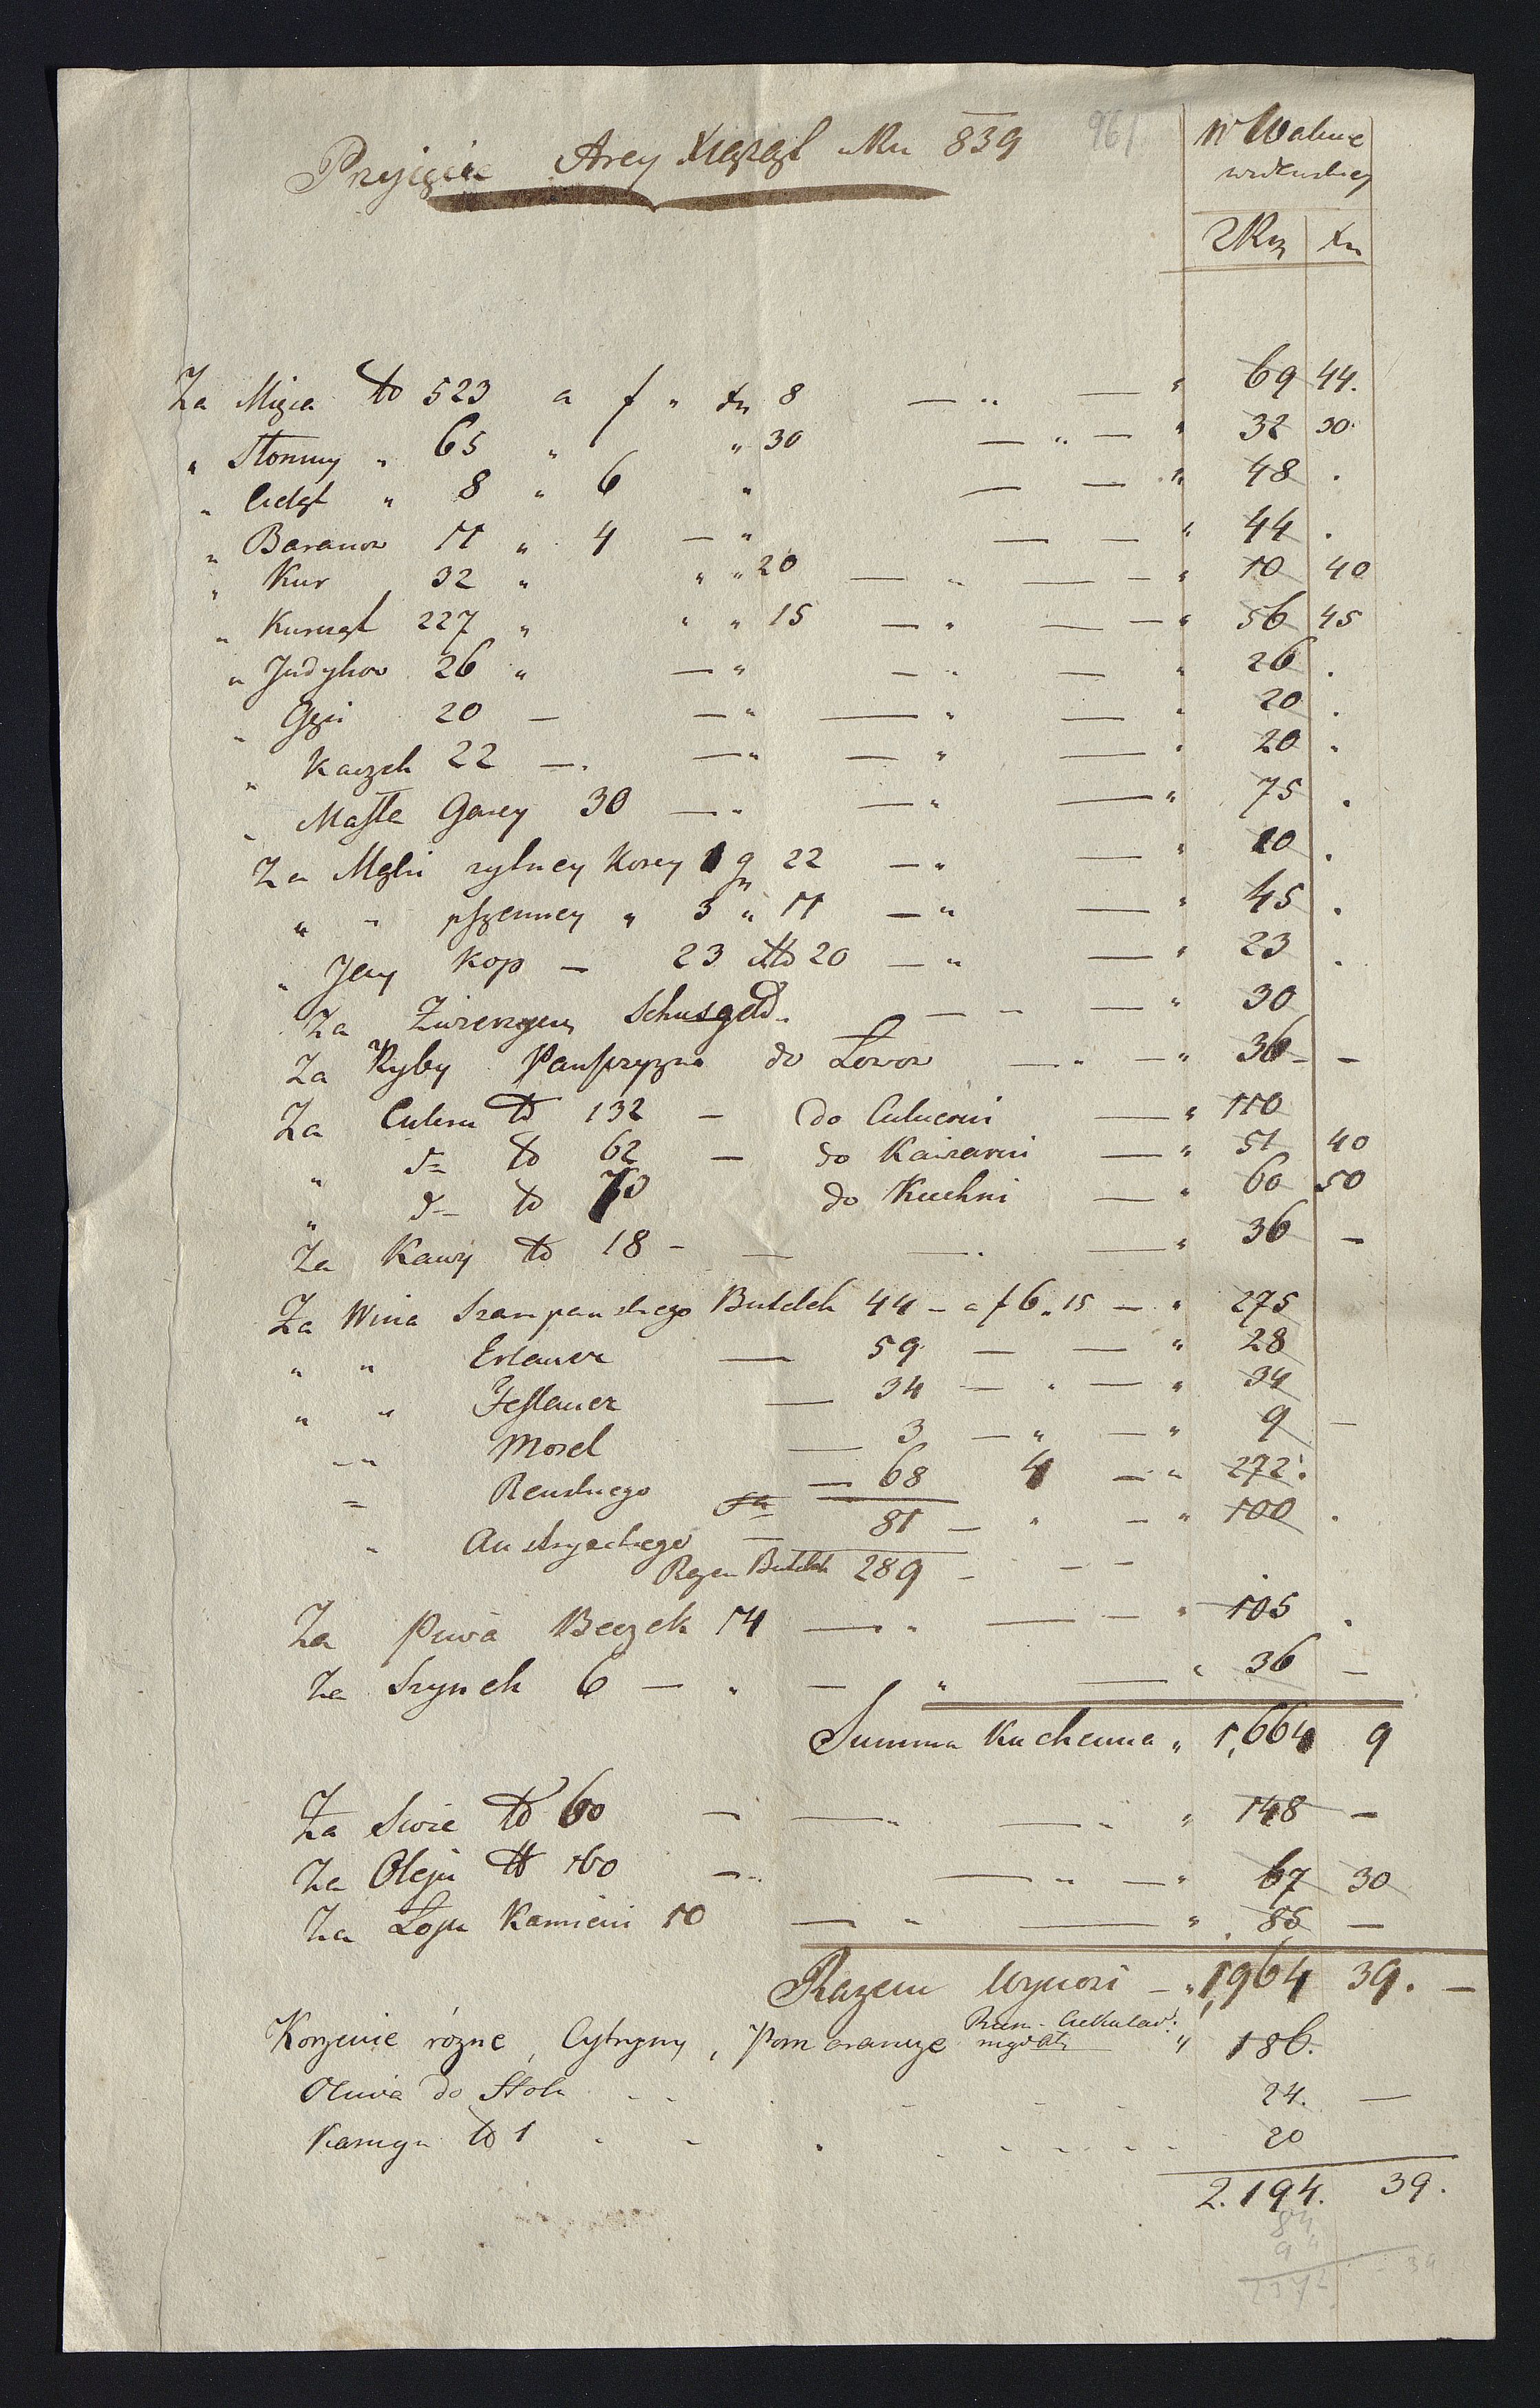 Przyięcie Arcy Xiążąt Rku 839 961
W Walucie
wiedenskiey
ZRyn xn
Za Mięsa ℔ 523 a f " xn 8 — " — " 69 44.
" Słoniny " 65 " " 30 — " — " 32 30.
" Cieląt " 8 " 6 " — — " 48 .
" Baranow 11 " 4 — " — — " 44 .
" Kur 32 " " " 20 — " — — " 10 40
" Kurcząt 227 " " " 15 — " — — " 56 45
" Jndykow 26 " — " — " — " 26 .
" Gęsi 20 — — " — " — " 20 .
" Kaczek 22 — . — " — " — " 20 .
" Masła Garcy 30 — " — " — " 75 .
Za Mąki zytney Korcy 1 g 22 — " — " 20 .
" " pszenney " 3 " 11 — " — " 45 .
" Jay Kop — 23 20 — " — " 23 .
Za Zwierzynę Schusgeld. — " — " 30
Za Ryby Pańszyzna do Łowow — " — " 36 — —
Za Cukru ℔ 132 — do Cukierni — " 110
" do ℔ 62 — do Kawiarni — " 51 40
" do ℔ 73 do Kuchni — " 60 50
Za Kawy ℔ 18 — — — . — " 36 —
Za Wina Szampanskiego Butelek 44 — a f 6 " 15 — " 275
" " Erlauer — 59 — — " 28
" " Feslauer — 34 — " — " 34
" " Mosel — 3 — " — " 9 —
" Renskiego — 68 4 — " 272.
" Austryackiego — 81 — " — " 100 .
Razem Butelek 289 — — —
Za Piwa Beczek 14 — " — — " 105 .
Za Szynek 6 — " — " — " 36 —
Summa Kuchenna " 1,664 9
Za Swie ℔ 60 — — " — " " 148 —
Za Oleju ℔ 160 — " — " — " 67 30
Za Łoju Kamieni 10 — " — " 85 —
Razem Wynosi — " 1,964 39. —
Rum. Ciekulad:
Korzenie rózne, Cytryny, Pomarancze migdały " 186.
Oliwa do Stołu 24. —
℔ 1 20
2.194. 39.